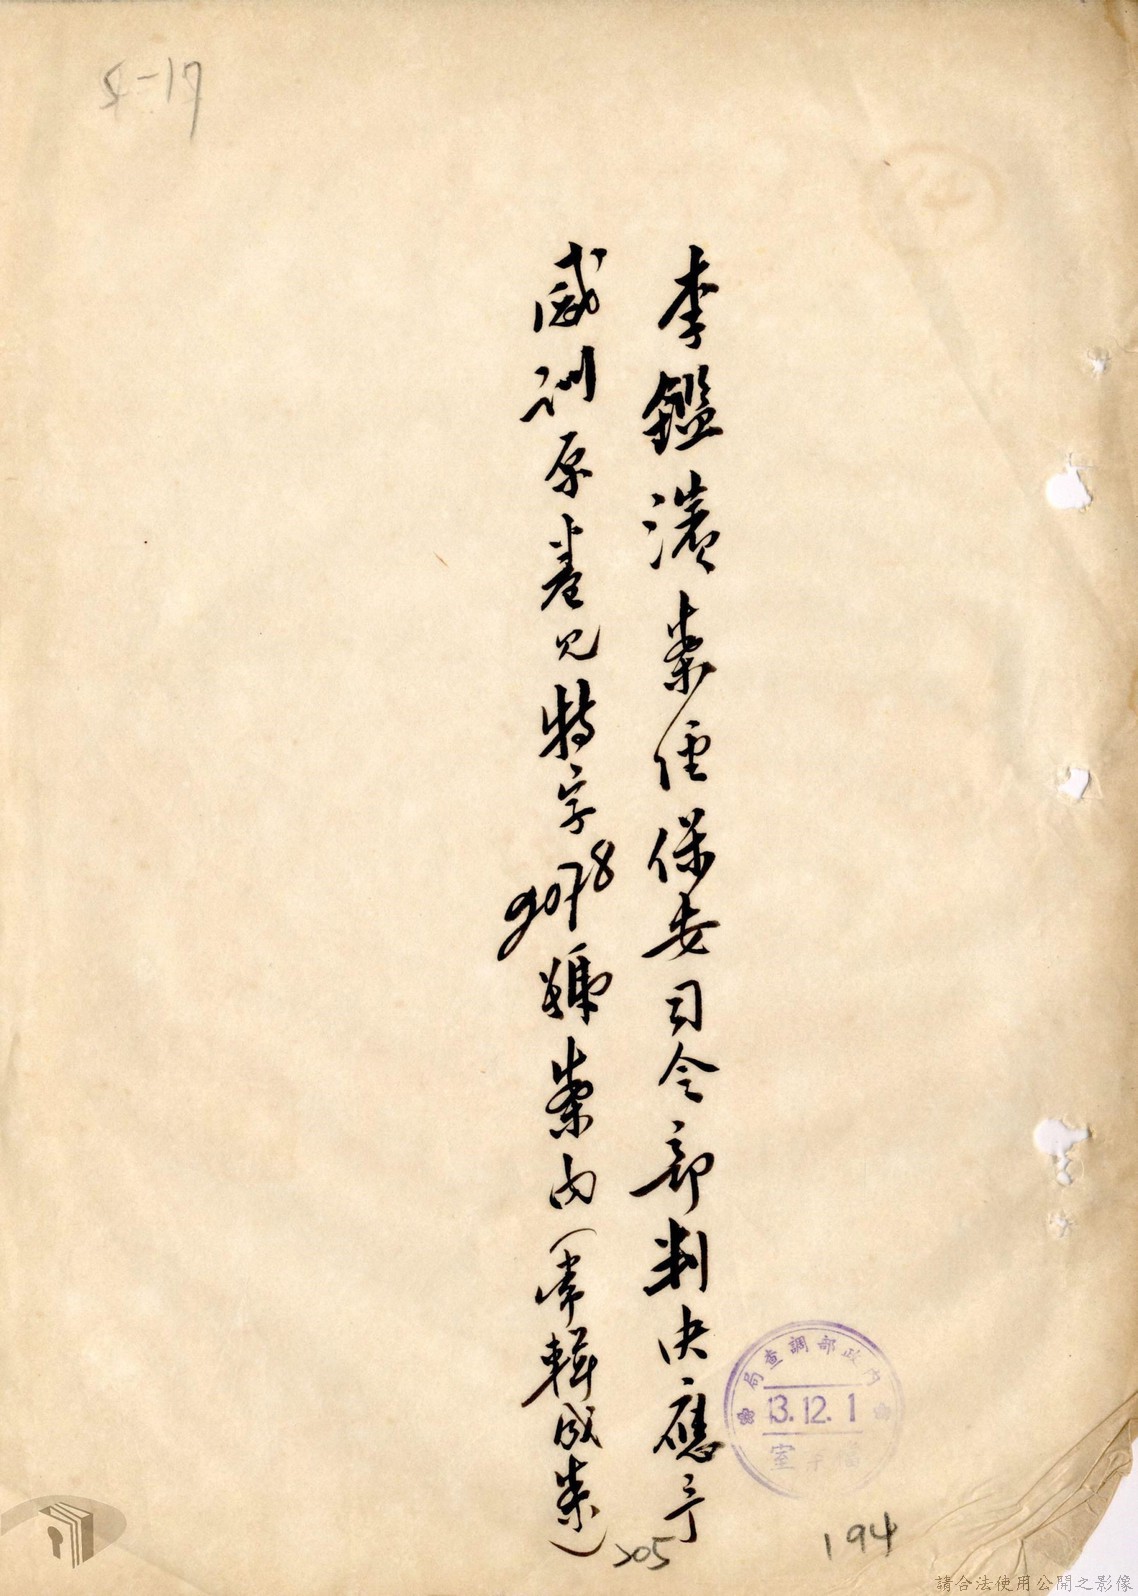 4-17
李鑑濱案經保安司令部判決應予
感訓原卷見特字9078號案內(常輯成案)
內政部調查局
13.12.1
室
205
194
請合法使用公開之影像